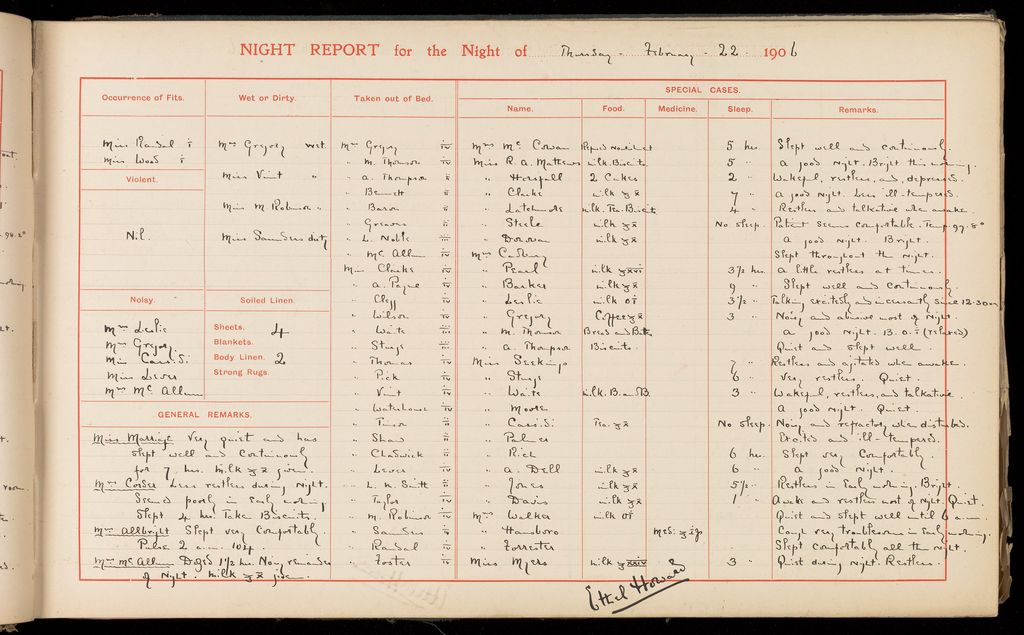 NIGHT REPORT for the Night of Thursday - February - 22 1906
Occurrence of Fits.
Miss Randal i
Miss Wood i
Violent.
Nil.
Noisy.
Mrs Leslie
Mrs Gregory.
Miss Cassidi
Miss Lever
Mrs Mc Allum
Wet or Dirty.
Mrs Gregory wet
Miss Vint "
Miss M Robinson "
Miss Saunders dirty
Soiled Linen.
Sheets. 4
Blankets.
Body Linen. 2
Strong Rugs.
GENERAL REMARKS.
Miss Marriage Very quiet and has
slept well and continuously
for 7 hrs. milk ℥x given.
Mrs Corder Less restless during night.
Seems poorly in early morning
Slept 4 hrs. Taken Biscuits.
Mrs Allbright Slept very comfortably.
Pulse 2 a.m. 104.
Mrs McAllum Dozed 1½ hrs. Noisy remainder
of Night. milk ℥x given.
Taken out of Bed.
Mrs Gregory iv
" M. Thomson iv
" A. Thompson ii
" Bennett ii
" Baron ii
" Greaves ii
" L. Noble iii
" Mc Allum iv
Miss Clarke iv
" A. Payne iv
" Cleff iv
" Wilson iv
" Waite iii
" Sturge iii
" Thomas iv
" Pick iv
" Vint iv
" Waterhouse iv
" iv
" Shaw iv
" Chadwick iv
" Lever iv
" L. N. Smith ii
" Taylor iv
" M. Robinson iv
" Saunders iv
" Randal iv
" Foster iv
SPECIAL CASES.
Name. Food. Medicine. Sleep. Remarks.
Mrs Mc Cowan 5 hrs. Slept well and continuously.
Miss R. A. Mathews milk. Biscuits 5 " A good night. Bright this morning.
" Horsfall 2 Cakes 2 " Wakeful, restless, and, depressed.
" Clarke milk ℥x 7 " A good night. Less ill-tempered.
" Latchmore milk. Tea. Biscuit 4 " Restless and talkative when awake.
" Steele milk ℥x No sleep. Patient seems comfortable. Temp. 97.8°
" Donovan milk ℥x A good night. Bright.
Mrs Cadbury Slept throughout the night.
" Pearl milk ℥xxvi 3½ hrs. A little restless at times.
" Barker milk ℥x 9 " Slept well and continuously.
" Leslie milk 3½ " Talking excitedly and incessantly since 12.30am
" Gregory Coffee ℥x 3 " Noisy and abusive most of night.
" M. Thomson Bread and Butter A good night. B.O. i (relaxed)
" A. Thompson Biscuits. Quiet and slept well.
Miss Seekings 7 " Restless and agitated when awake.
" Sturge 6 " Very restless. Quiet.
" Waite milk. B. and B. 3 " Wakeful, restless, and talkative.
" Moore A good night. Quiet.
" Cassidi Tea. ℥x No sleep. Noisy and refractory when disturbed.
" Palmer Excited and ill-tempered.
" Rich 6 hrs. Slept very comfortably.
" A. Dell milk ℥x 6 " A good night.
" Jones milk ℥x 5½ " Restless in early morning. Bright.
" Davis milk ℥x 1 " Awake and restless most of night. Quiet.
Mrs Walker milk Quiet and slept well until 6 a.m.
" Hansboro Med: Cough very troublesome in early morning.
" Forrester Slept comfortably all the night.
Miss Myers milk ℥xxiv 3 " Quiet during night. Restless.
Ethel Howard